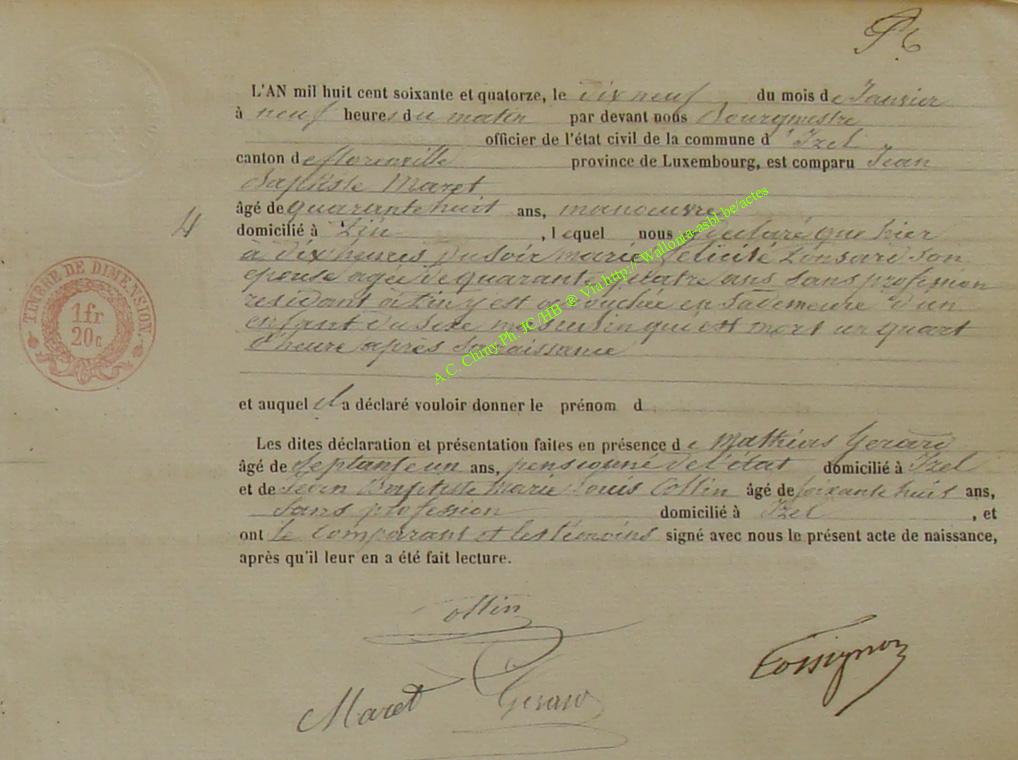 L'AN mil huit cent soixante et quatorze, le dix neuf du mois de Janvier
à neuf heures du matin par devant nous Bourgmestre
officier de l'état civil de la commune d' Izel
canton de florenville province de Luxembourg, est comparu Jean
Baptiste Maret
âgé de quarante huit ans, manoeuvre
4
domicilié à , lequel nous déclaré que hier
à dix heures du soir marie félicité son
épouse agée de quarante quatre ans sans profession
résidant à est accouchée en sa demeure d'un
enfant du sexe masculin qui est mort un quart
d'heure après sa naissance
TIMBRE DE DIMENSION.
1 fr
20 c
A.C. Chiny Ph. JC /HB ® Via http:// Wallonia-asbl.be/actes
et auquel il a déclaré vouloir donner le prénom d
Les dites déclaration et présentation faites en présence de Mathias Gerard
âgé de septante un ans, pensionné de l'état domicilié à Izel
et de Jean Baptiste Marie Louis Collin âgé de soixante huit ans,
sans profession domicilié à Izel , et
ont le comparant et les témoins signé avec nous le présent acte de naissance,
après qu'il leur en a été fait lecture.
Collin
Maret Gerard